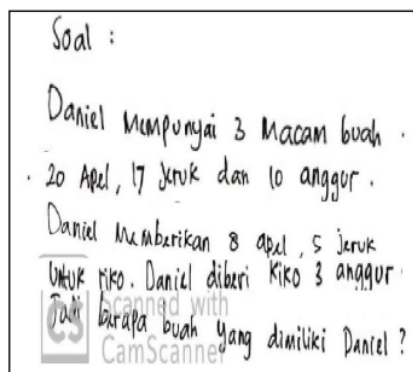 Soal :
Daniel Mempunyai 3 Macam buah .
. 20 Apel, 17 Jeruk dan 10 anggur .
Daniel Memberikan 8 apel, 5 jeruk
Untuk Kiko. Daniel diberi Kiko 3 anggur
Jadi berapa buah yang dimiliki Daniel ?
CS Scanned with
CamScanner